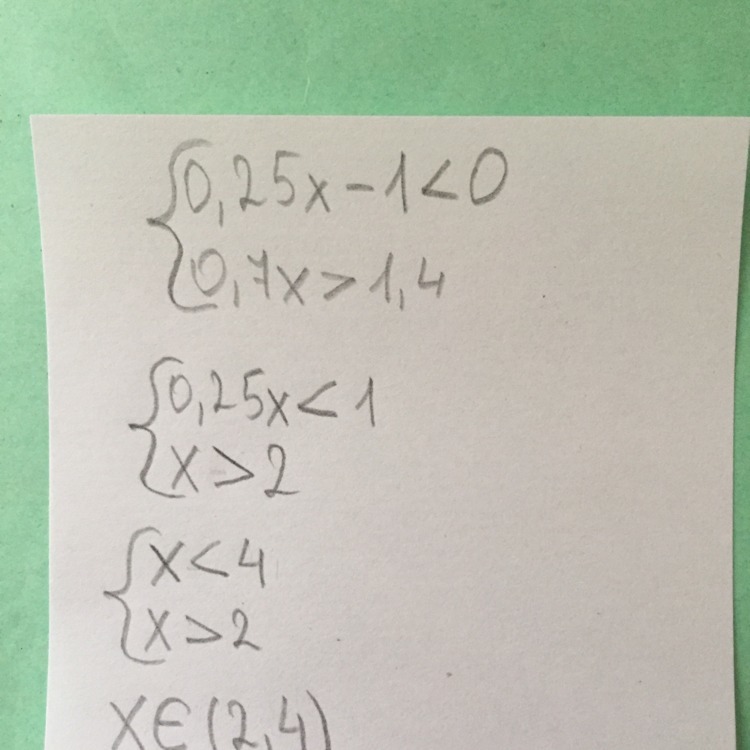 {0,25x-1<0
0,7x>1,4
{0,25x<1
x>2
{x<4
x>2
x∈(2,4)